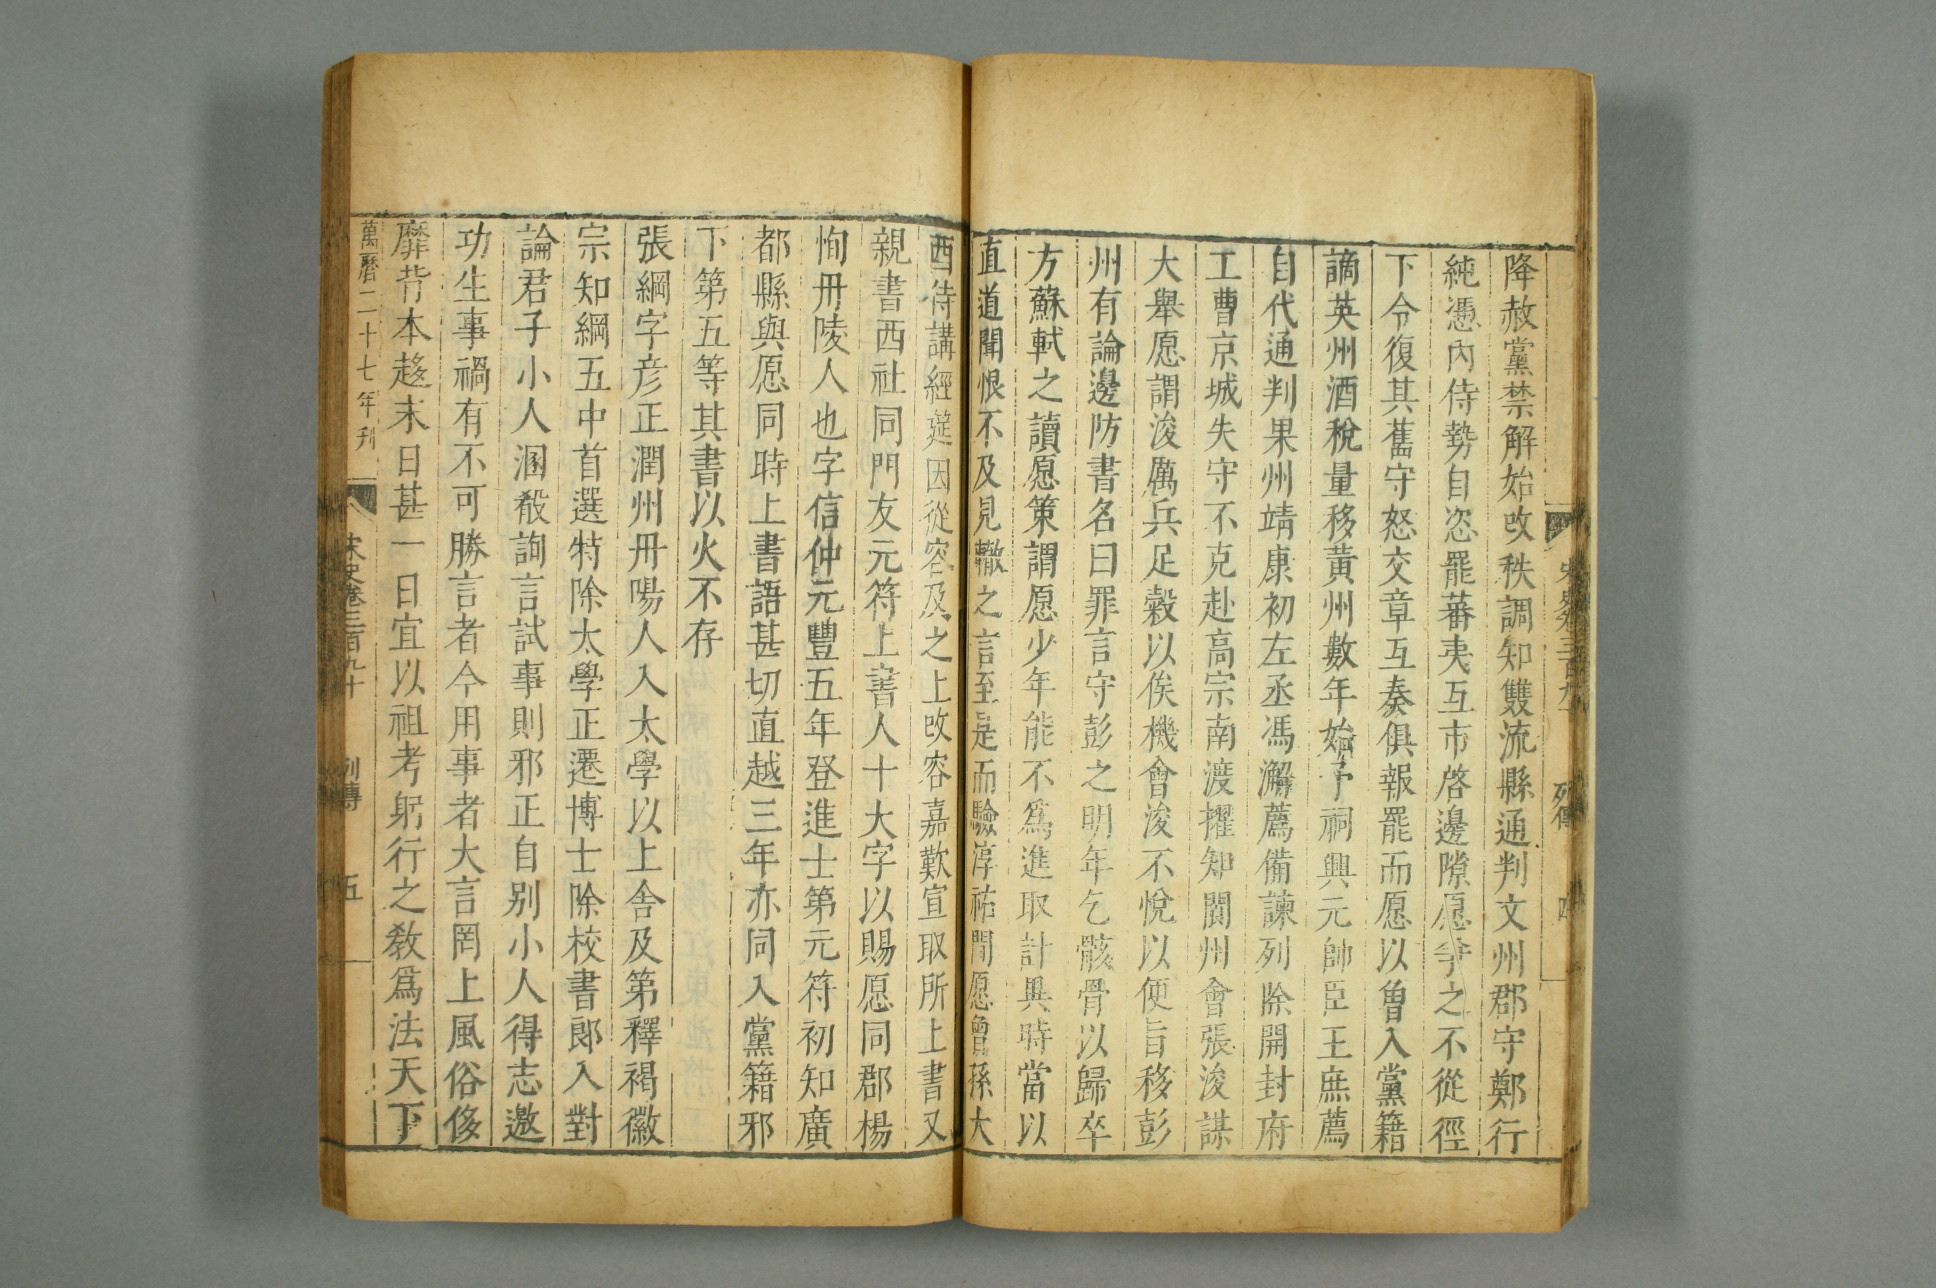 降赦黨禁解始改秩調知雙流縣通判文州郡守鄭行
純憑內侍勢自恣罷蕃夷互市啓邊隙愿爭之不從徑
下令復其舊守怒交章互奏俱報罷而愿以曾入黨籍
謫英州酒稅量移黃州數年始予祠興元帥臣王庶薦
自代通判果州靖康初左丞馮澥薦備諫列除開封府
工曹京城失守不克赴高宗南渡擢知閬州會張浚謀
大舉愿謂浚厲兵足穀以俟機會浚不悅以便旨移彭
州有論邊防書名曰罪言守彭之明年乞骸骨以歸卒
方蘇軾之讀愿策謂愿少年能不爲進取計異時當以
直道聞恨不及見轍之言至是而驗淳祐間愿曾孫大
酉侍講經筵因從容及之上改容嘉歎宣取所上書又
親書西社同門友元符上書人十大字以賜愿同郡楊
恂冊陵人也字信仲元豐五年登進士第元符初知廣
都縣與愿同時上書語甚切直越三年亦同入黨籍邪
下第五等其書以火不存
張綱字彥正潤州冊陽人入太學以上舍及第釋褐徽
宗知綱五中首選特除太學正遷博士除校書郎入對
論君子小人溷殽詢言試事則邪正自别小人得志邀
功生事禍有不可勝言者今用事者大言罔上風俗侈
靡背本趍末日甚一日宜以祖考躬行之敎爲法天下
萬曆二十七年刊
宋史卷三百九十 列傳 五